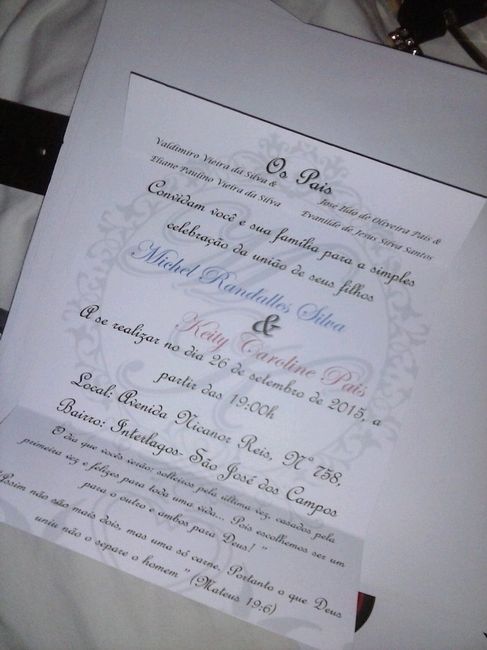 Os Pais
Valdimiro Vieira da Silva &
Eliane Paulino Vieira da Silva
José Ildo de Oliveira Pais &
Evanilde de Jesus Silva Santos
Convidam você e sua família para a simples
celebração da união de seus filhos
Michel Randalles Silva
&
Keity Caroline Pais
A se realizar no dia 26 de setembro de 2015, a
partir das 19:00h
Local: Avenida Nicanor Reis, Nº 758,
Bairro: Interlagos- São José dos Campos
O dia que vocês verão: solteiros pela última vez, casados pela
primeira vez e felizes para toda uma vida... Pois escolhemos ser um
para o outro e ambos para Deus! "
"Assim não são mais dois, mas uma só carne. Portanto o que Deus
uniu não o separe o homem " (Mateus 19:6)